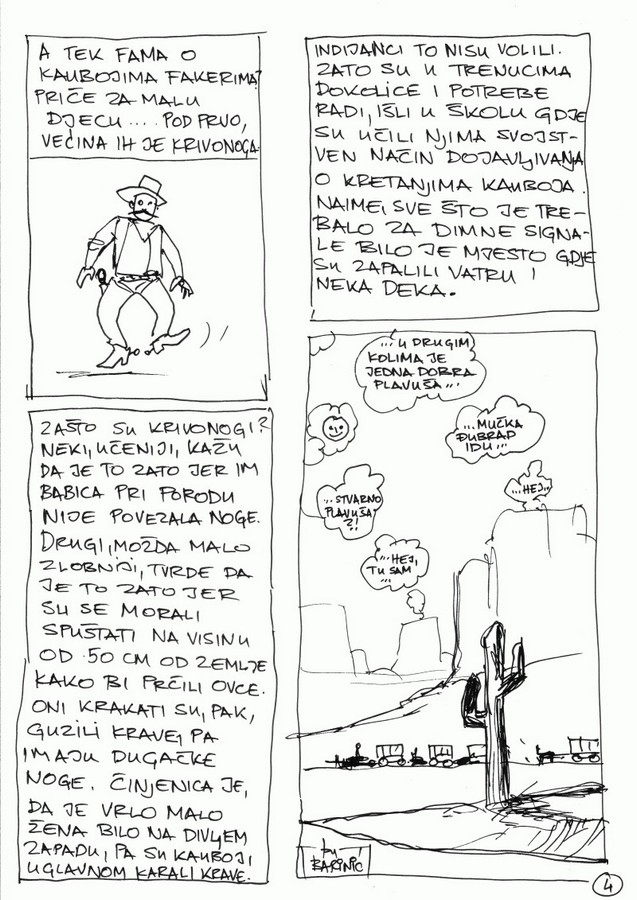 A TEK FAMA O
KAUBOJIMA FAKERIMA?
PRIČE ZA MALU
DJECU.... POD PRVO,
VEĆINA IH JE KRIVONOGA.
ZAŠTO SU KRIVONOGI?
NEKI, UČENIJI, KAŽU
DA JE TO ZATO JER IM
BABICA PRI PORODU
NIJE POVEZALA NOGE.
DRUGI, MOŽDA MALO
ZLOBNIJI, TVRDE DA
JE TO ZATO JER
SU SE MORALI
SPUŠTATI NA VISINU
OD 50 CM OD ZEMLJE
KAKO BI PRČILI OVCE.
ONI KRAKATI SU, PAK,
GUZILI KRAVE, PA
IMAJU DUGAČKE
NOGE. ČINJENICA JE,
DA JE VRLO MALO
ŽENA BILO NA DIVLJEM
ZAPADU, PA SU KAUBOJI
UGLAVNOM KARALI KRAVE.
INDIJANCI TO NISU VOLILI.
ZATO SU U TRENUCIMA
DOKOLICE I POTREBE
RADI, IŠLI U ŠKOLU GDJE
SU UČILI NJIMA SVOJST-
VEN NAČIN DOJAVLJIVANJA
O KRETANJIMA KAUBOJA.
NAIME, SVE ŠTO JE TRE-
BALO ZA DIMNE SIGNA-
LE BILO JE MJESTO GDJE
SU ZAPALILI VATRU I
NEKA DEKA.
...U DRUGIM
KOLIMA JE
JEDNA DOBRA
PLAVUŠA...
...MUČKA
ĐUBRAD
IDU...
...HEJ...
...STVARNO
PLAVUŠA
?!
...HEJ,
TU SAM
by
BARINIĆ
4